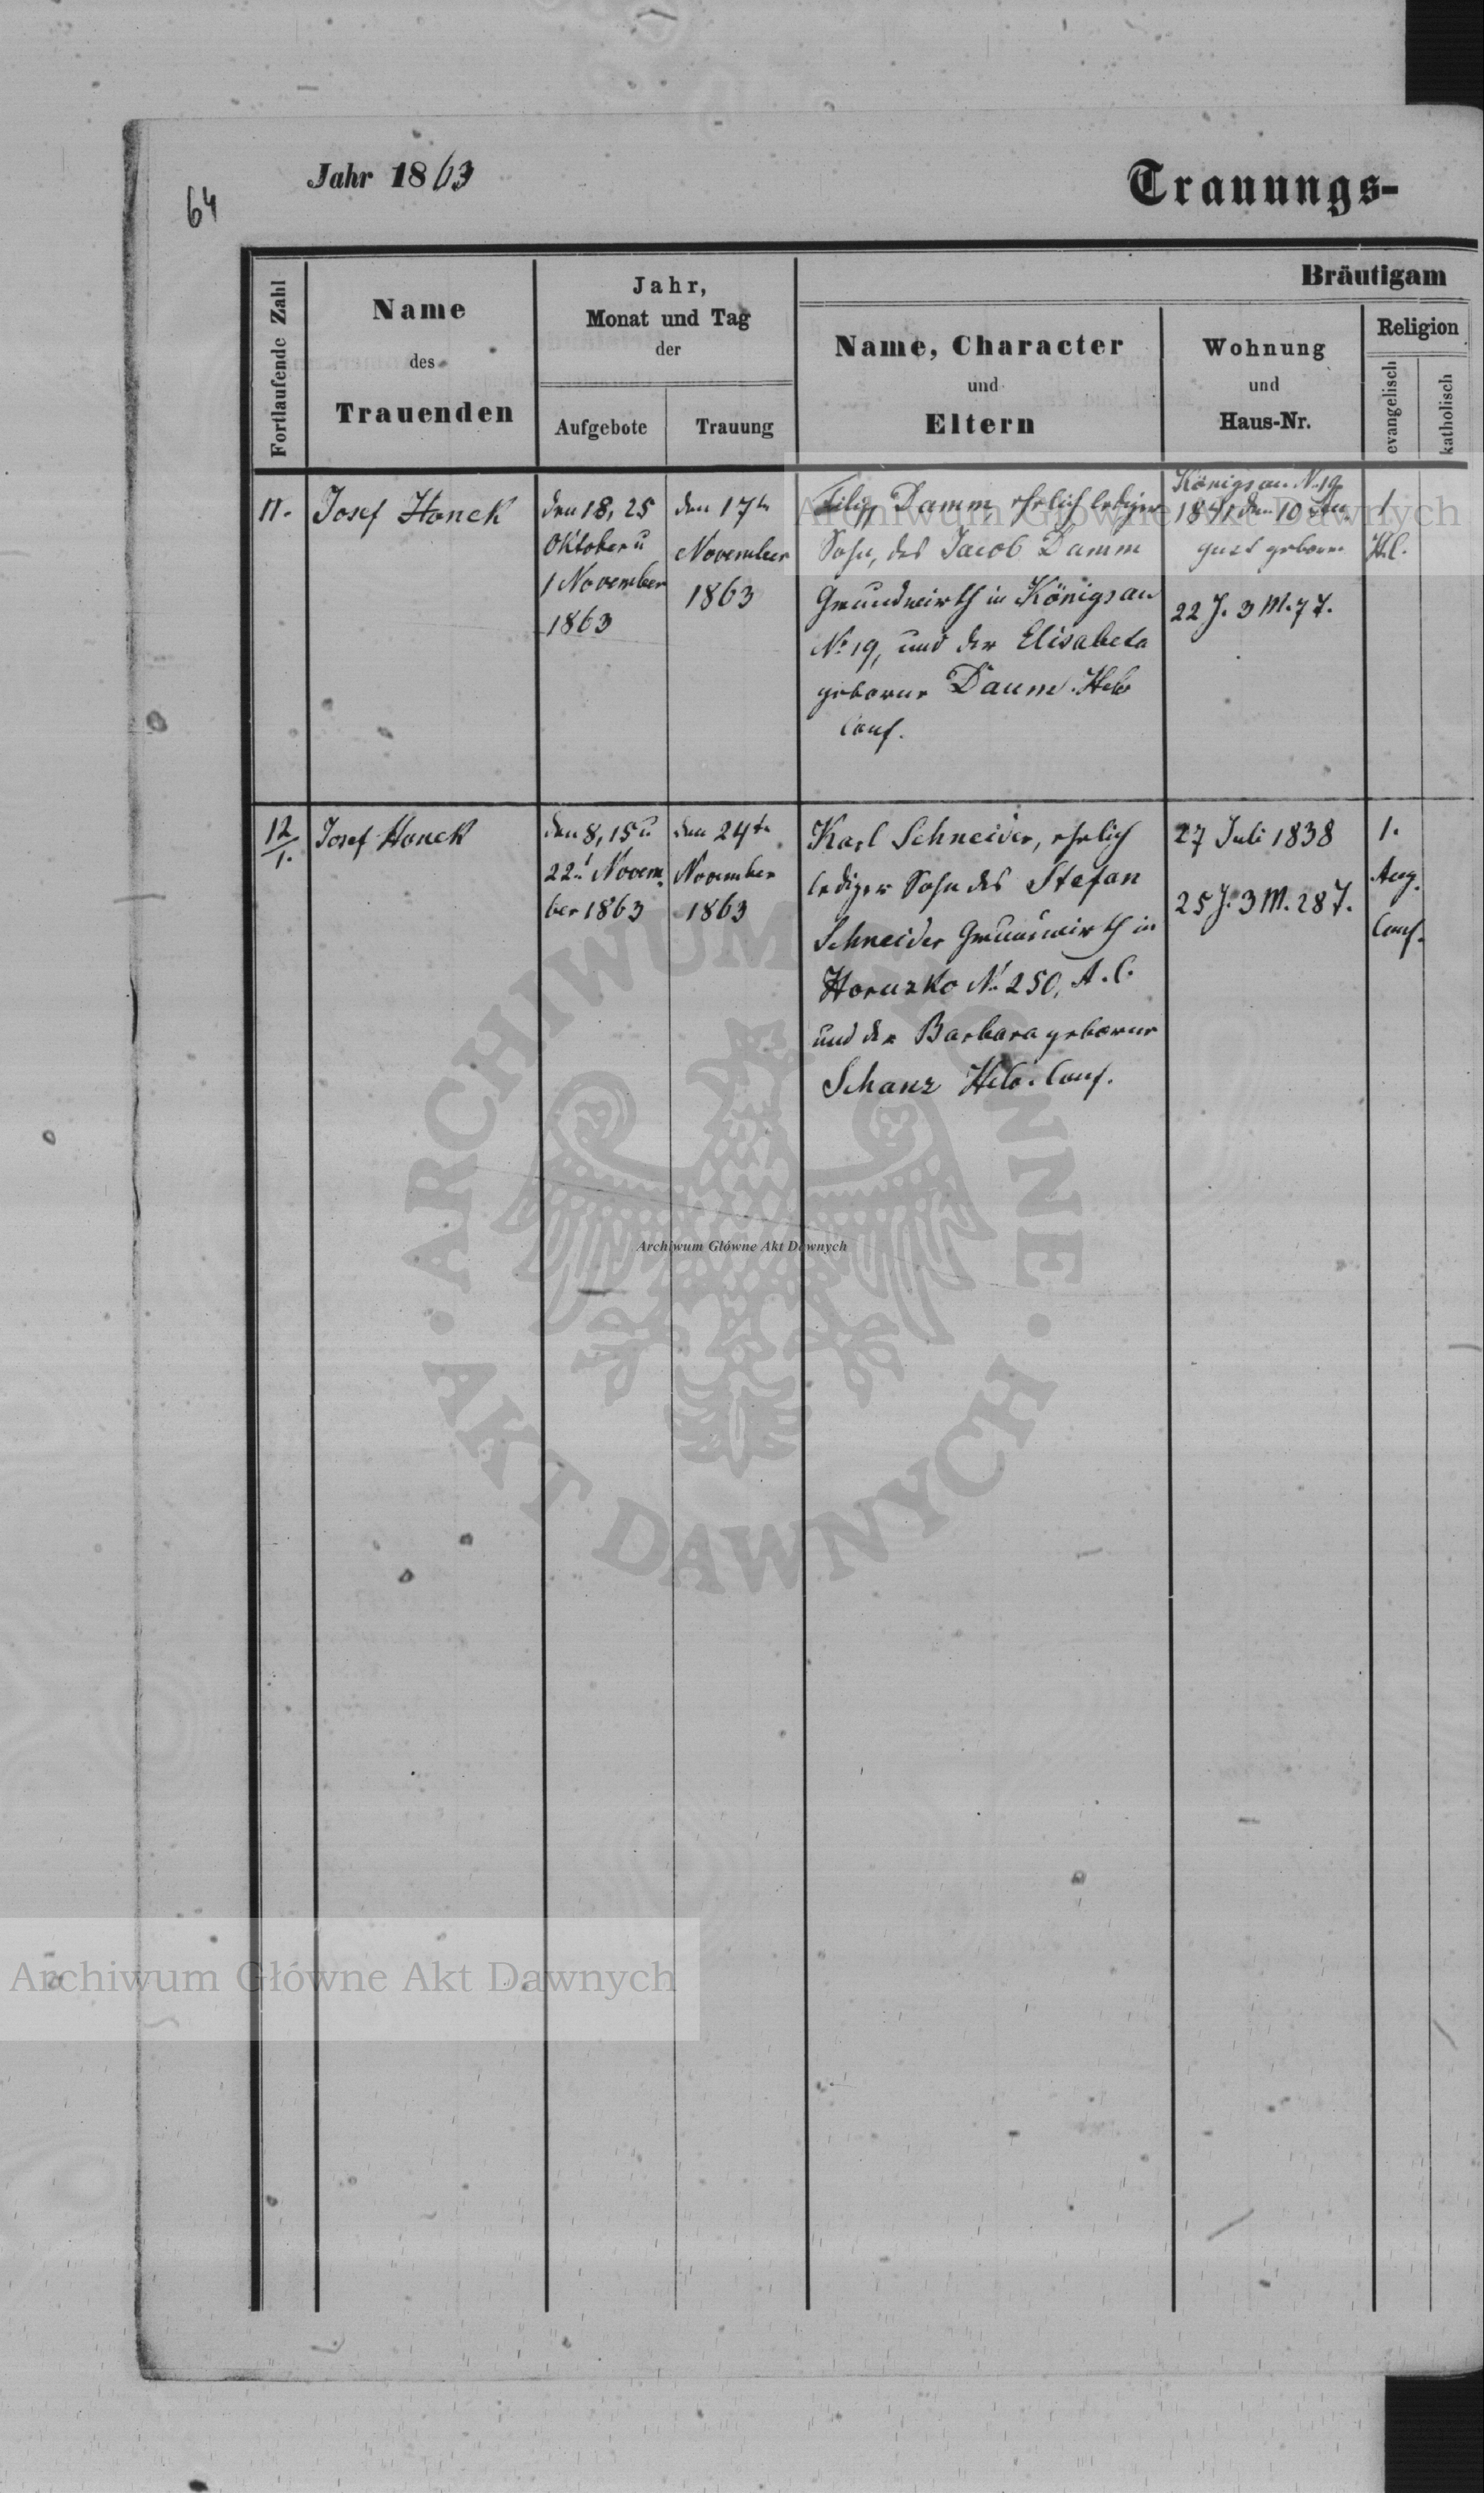 64
Jahr 1863
Trauungs-
Fortlaufende Zahl
Name
des
Trauenden
Jahr,
Monat und Tag
der
Aufgebote
Trauung
Bräutigam
Name, Character
und
Eltern
Wohnung
und
Haus-Nr.
Religion
evangelisch
katholisch
11.
Josef Honek
den 18, 25
Oktober u
1 November
1863
den 17tn
November
1863
Filip Damm, ehrlich lediger
Sohn, des Jacob Damm
Grundwirth in Königsau
No 19, und der Elisabeta
geborne Daum. Helv
Conf.
Königsau N. 19
1841 den 10 Au-
gust geboren
22 J. 3 M. 7 T.
1
H.C.
12/1.
Josef Honek
den 8, 15 u
22n Novem.
ber 1863
den 24tn
November
1863
Karl Schneider, ehrlich
lediger Sohn des Stefan
Schneider Grundwirth in
Horuzko No 250, A. C.
und der Barbara geborne
Schanz Helv. Conf.
27 Juli 1838
25 J. 3 M. 28 T.
1.
Aug.
Conf.
Archiwum Główne Akt Dawnych
ARCHIWUM GŁÓWNE
AKT DAWNYCH
Archiwum Główne Akt Dawnych
Archiwum Główne Akt Dawnych